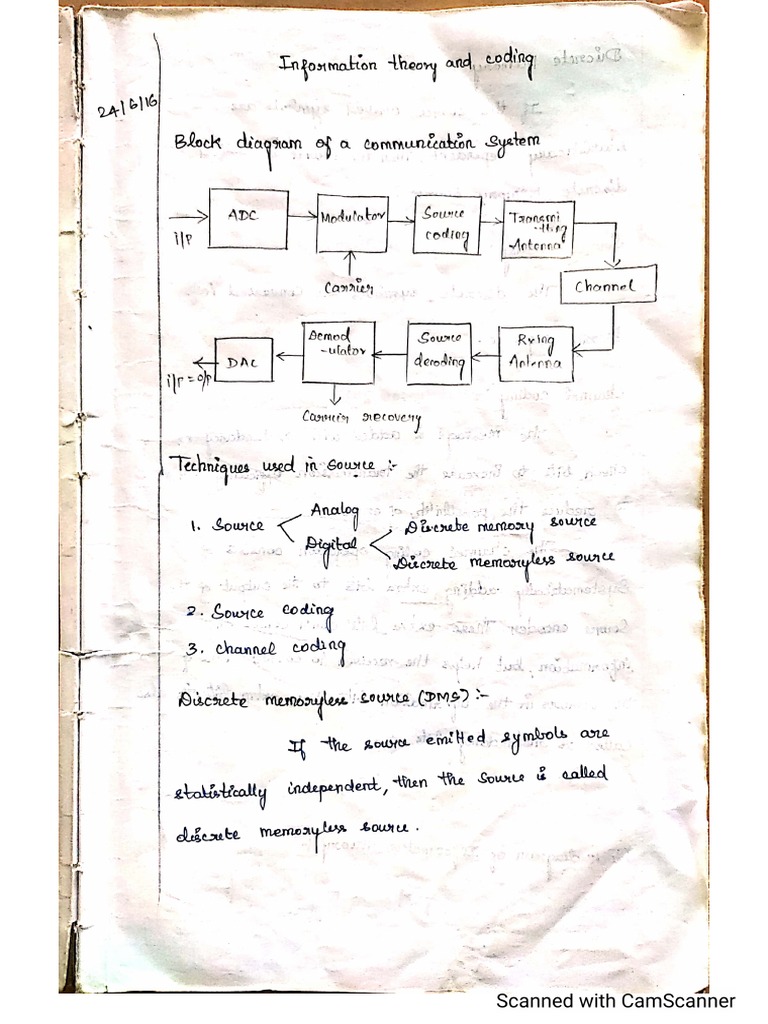 Information theory and coding
24/6/16
Block diagram of a communication system
ADC
Modulator
Source
coding
Transmi
-tting
Antenna
i/p
Carrier
Channel
DAC
Demod
-ulator
Source
decoding
Rxing
Antenna
i/p = o/p
Carrier recovery
Techniques used in source :-
1. Source
Analog
Digital
Discrete memory source
Discrete memoryless source
2. Source coding
3. channel coding
Discrete memoryless source (DMS) :-
If the source emitted symbols are
statistically independent, then the source is called
discrete memoryless source.
Scanned with CamScanner